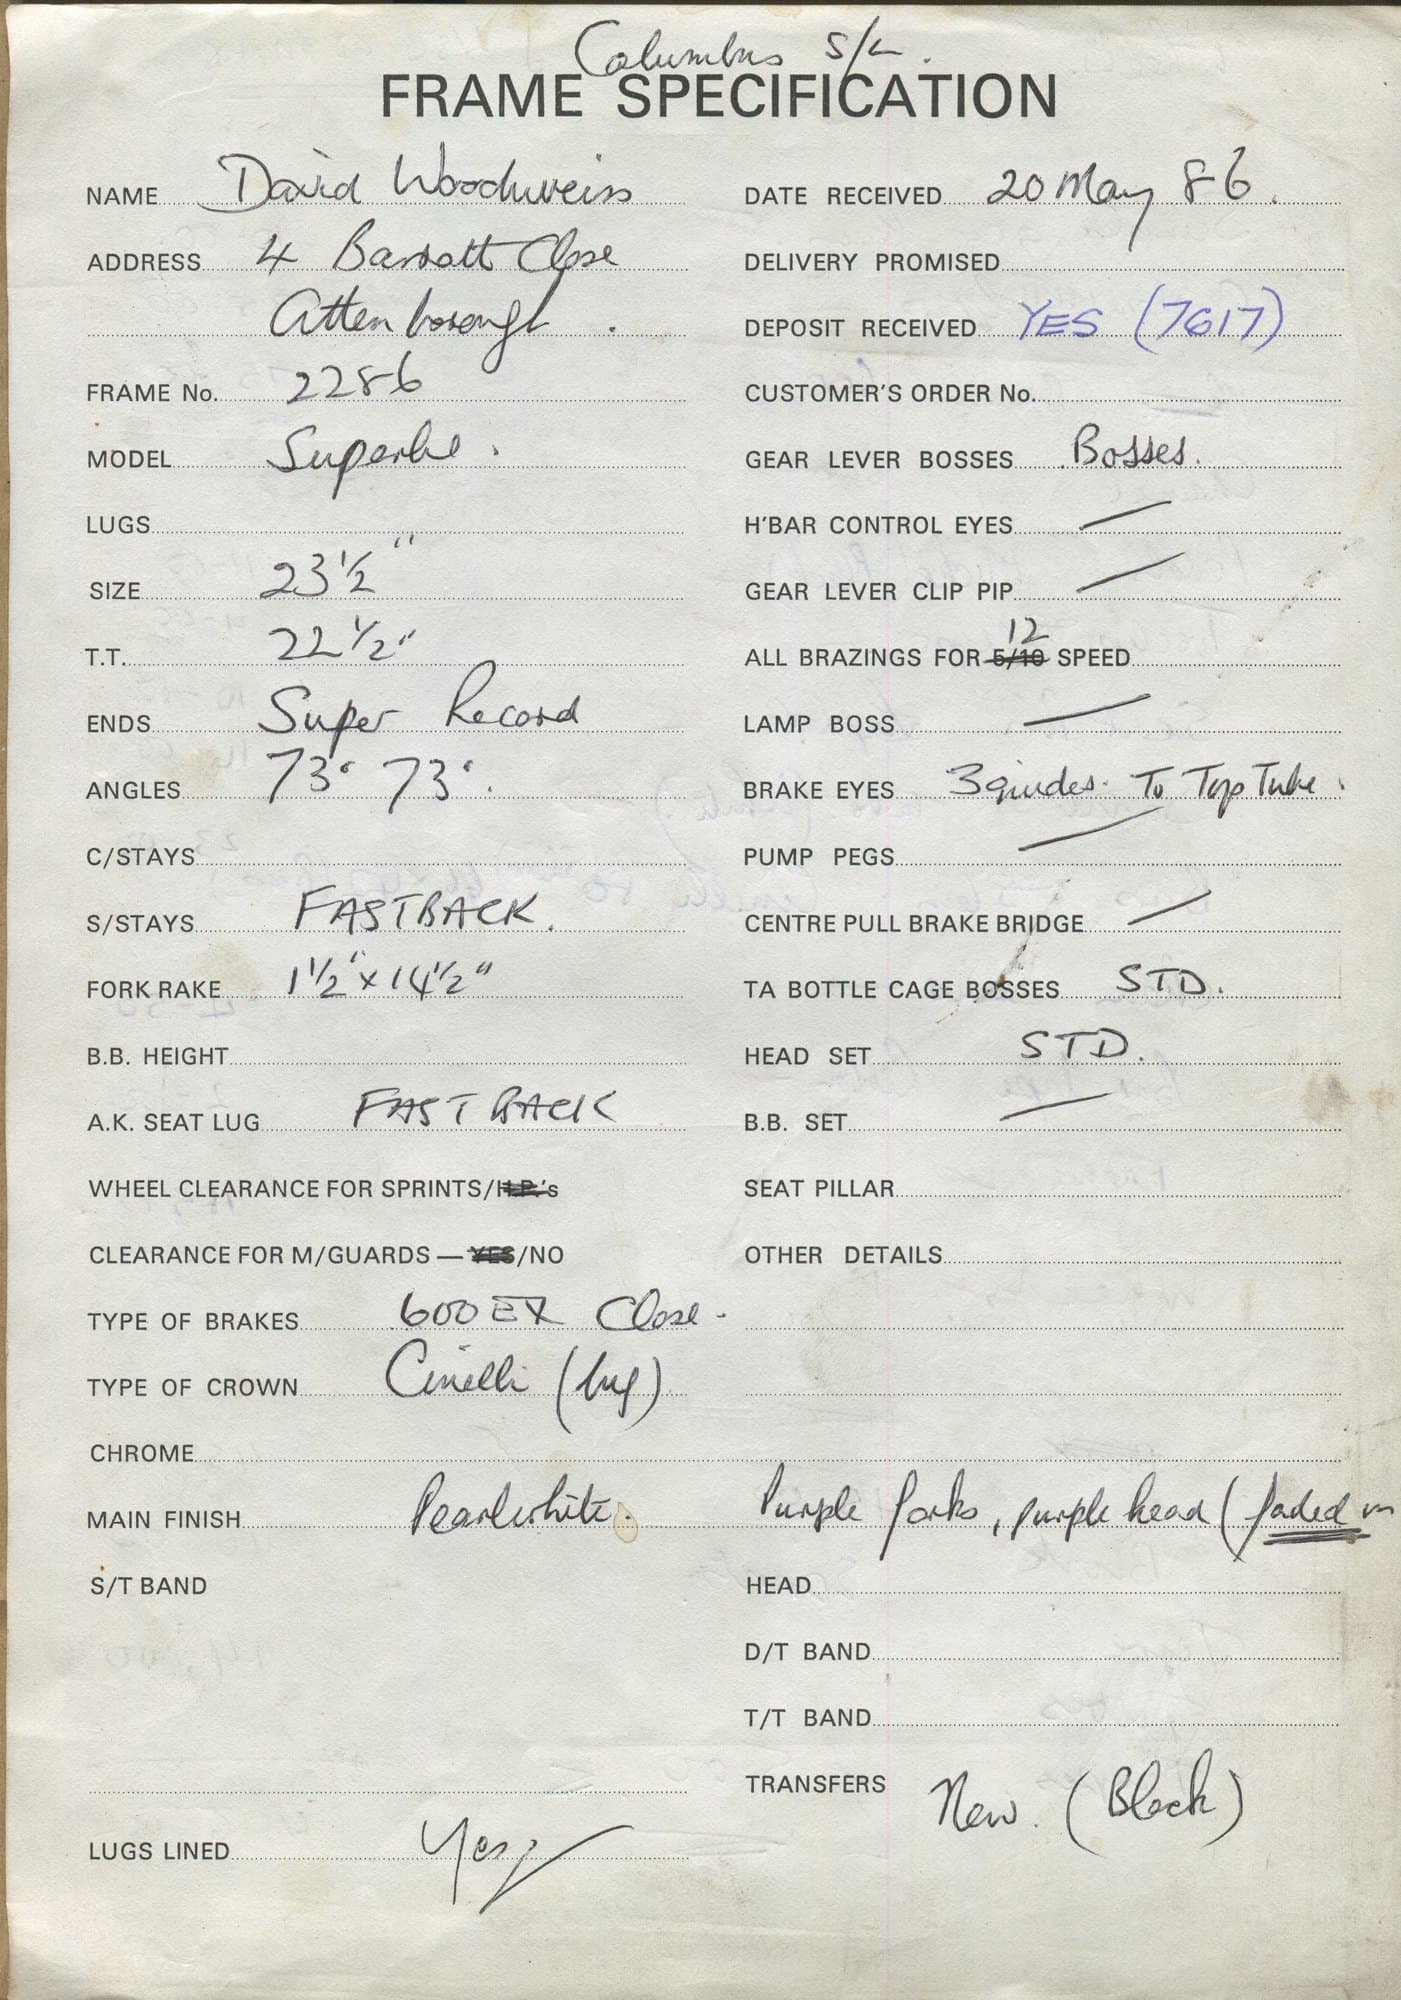 Columbus S/L.
FRAME SPECIFICATION
NAME David Woodweiss
ADDRESS 4 Barratt Close
Attenborough.
FRAME No. 2286
MODEL Superbe.
LUGS
SIZE 23½"
T.T. 22½"
ENDS Super Record
ANGLES 73° 73°.
C/STAYS
S/STAYS FASTBACK.
FORK RAKE 1½" x 14½"
B.B. HEIGHT
A.K. SEAT LUG FASTBACK
WHEEL CLEARANCE FOR SPRINTS/H.P.'s
CLEARANCE FOR M/GUARDS — YES/NO
TYPE OF BRAKES 600 EX Close.
TYPE OF CROWN Cinelli (lug)
CHROME
MAIN FINISH Pearlwhite. Purple forks, purple head (faded in
S/T BAND
LUGS LINED Yes
DATE RECEIVED 20 May 86.
DELIVERY PROMISED
DEPOSIT RECEIVED YES (7617)
CUSTOMER'S ORDER No.
GEAR LEVER BOSSES Bosses.
H'BAR CONTROL EYES —
GEAR LEVER CLIP PIP —
ALL BRAZINGS FOR 5/10 12 SPEED
LAMP BOSS —
BRAKE EYES 3 guides. To Top Tube.
PUMP PEGS —
CENTRE PULL BRAKE BRIDGE —
TA BOTTLE CAGE BOSSES STD.
HEAD SET STD.
B.B. SET —
SEAT PILLAR
OTHER DETAILS
HEAD
D/T BAND
T/T BAND
TRANSFERS New. (Black)